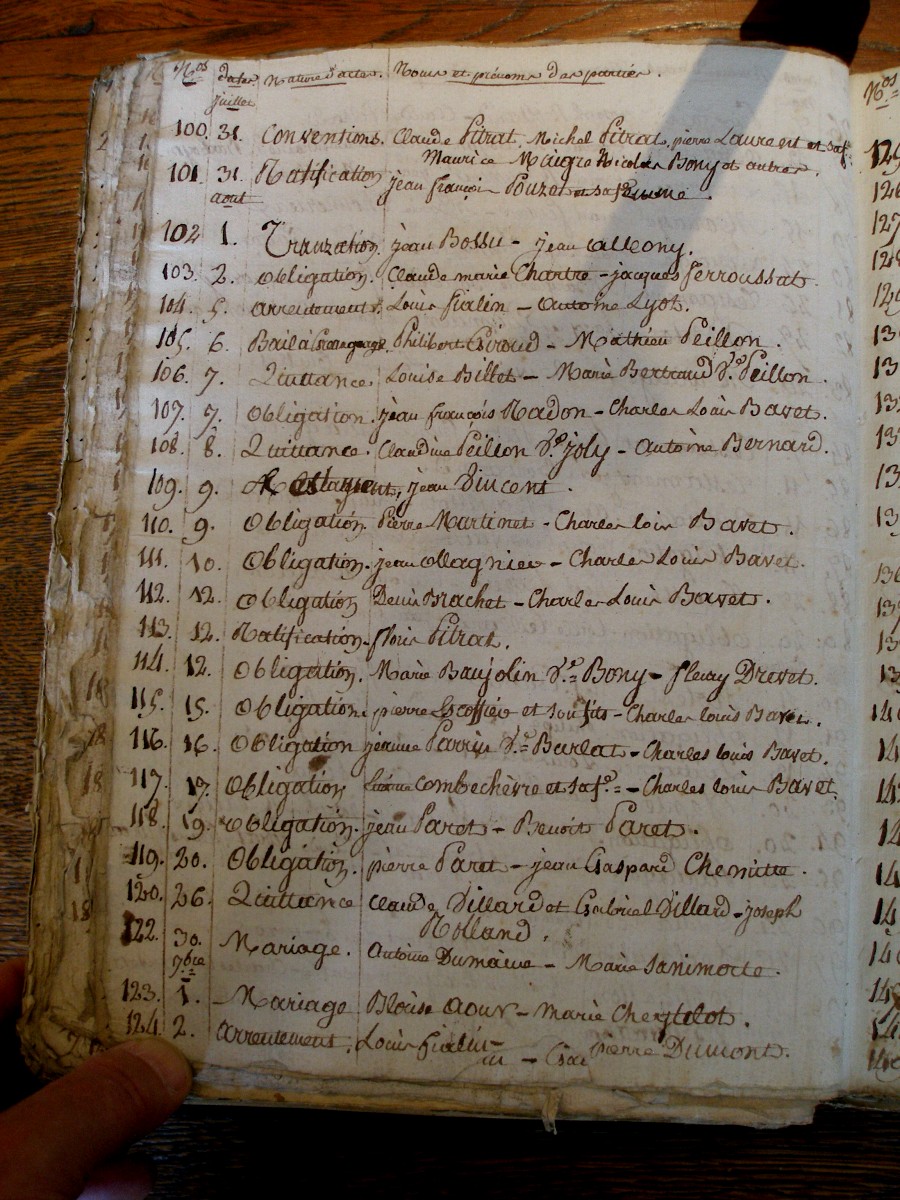 Nos dates Nature d'actes. Noms et prénoms des parties.
juillet
100. 31. Conventions. Claude Pitrat, Michel Pitrat, pierre Laurent et sa f.
Maurice Maigre Nicolas Bony et autres.
101. 31. Ratification jean françois Pouzet et sa femme.
aout
102 1. Tranzation. jean Bossu - jean
103. 2. Obligation. Claude marie Chartre - jacques ferroussat
104. 5. arrentement. Louis fialin - Antoine Lyot.
105. 6. Bail à Grangeage. Philibert Giroud - Mathieu Peillon.
106. 7. Quittance. Louise Billet - Marie Bertrand Ve. Peillon.
107. 7. Obligation. jean françois Nadon - Charles Louis Bavet.
108. 8. Quittance. Claudine Peillon Ve. joly - Antoine Bernard.
109. 9. jean Vincent.
110. 9. Obligation. Pierre Martinet - Charles louis Bavet.
111. 10. Obligation. jean ollagnier - Charles Louis Bavet.
112. 12. Obligation Denis Brachet - Charles Louis Bavet.
113. 12. Ratification. floris Pitrat.
114. 12. Obligation. Marie Baujolin Ve. Bony - fleury Drevet.
115. 15. Obligation. pierre Escoffier et son fils - Charles louis Bavet.
116. 16. Obligation jeanne Parrin Ve. Burlat - Charles louis Bavet.
117. 17. Obligation combechèvre et sa fe. = - Charles louis Bavet.
118. 19. Obligation. jean Paret - Benoit Paret.
119. 20. Obligation. pierre Paret - jean Gaspard Chemitte.
120. 26. Quittance Claude Dillard et Gabriel Dillard - joseph
Rolland.
122. 30. Mariage. Antoine Dumaine - Marie Sanimorte.
7bre
123. 1. Mariage Blaise - marie
124. 2. arrentement. Louis fialin
- pierre Dumont.
Nos